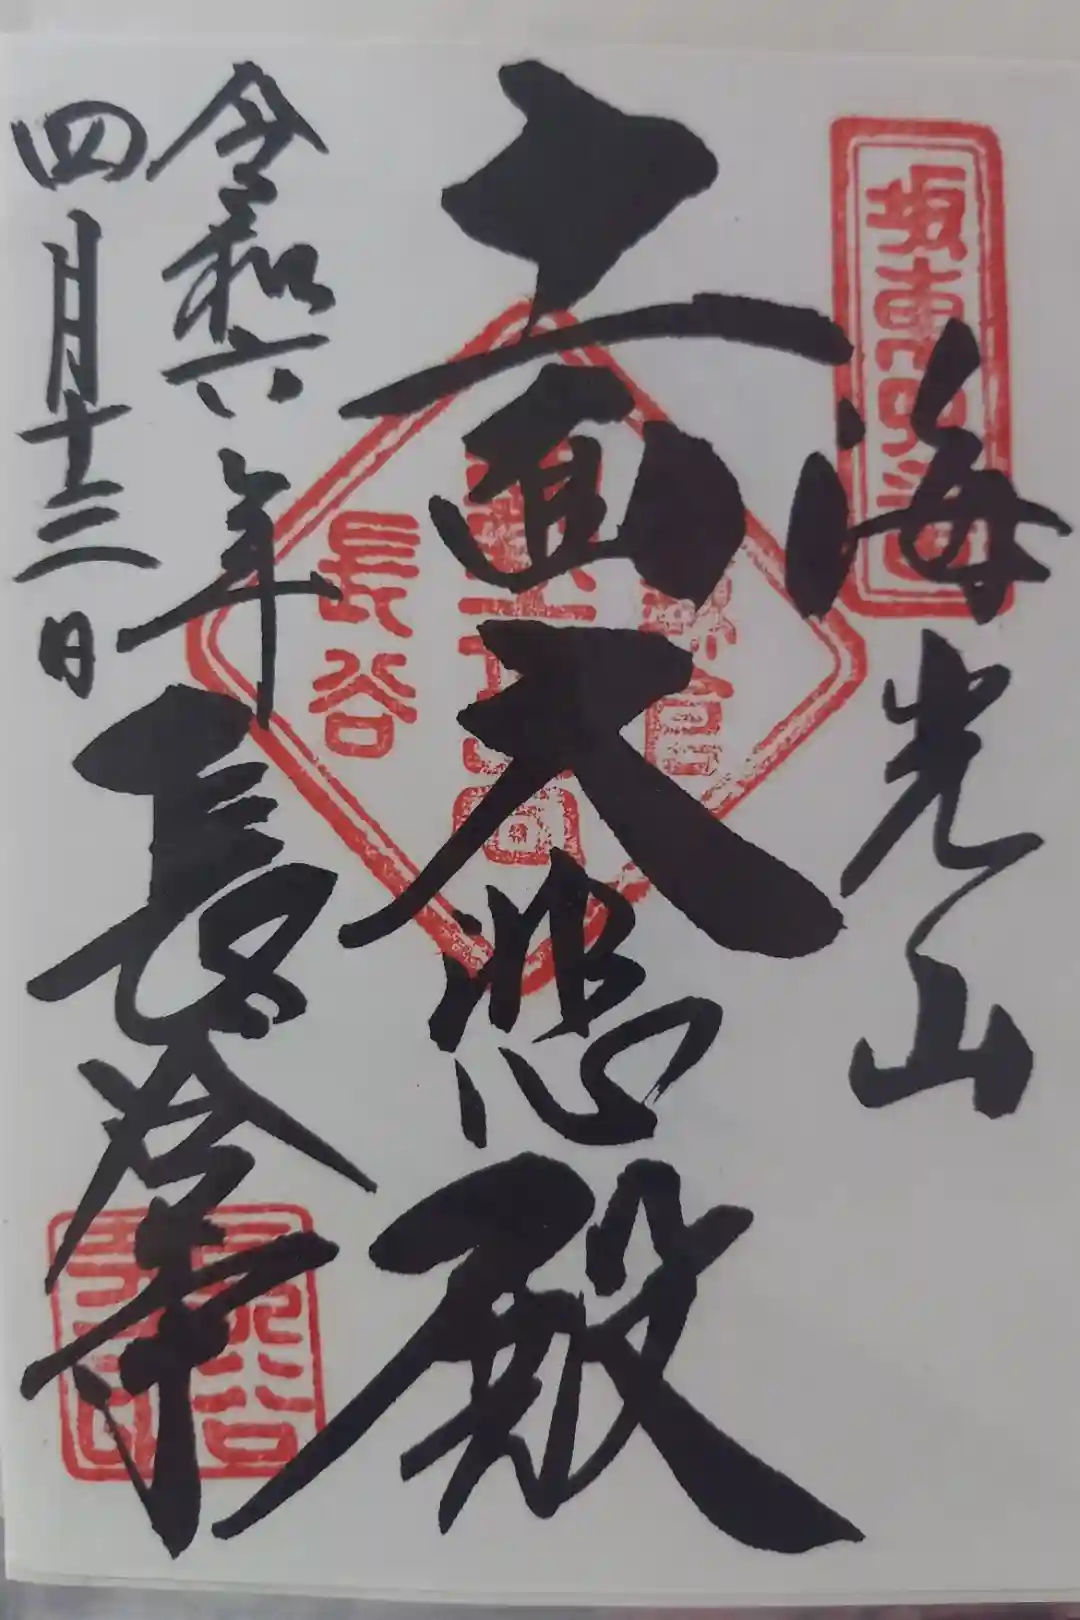 坂東四番
海光山
十一面大悲殿
長谷
令和六年
四月十三日
長谷寺